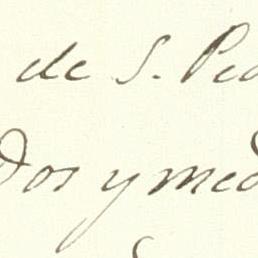 de S. Ped
Dos y med